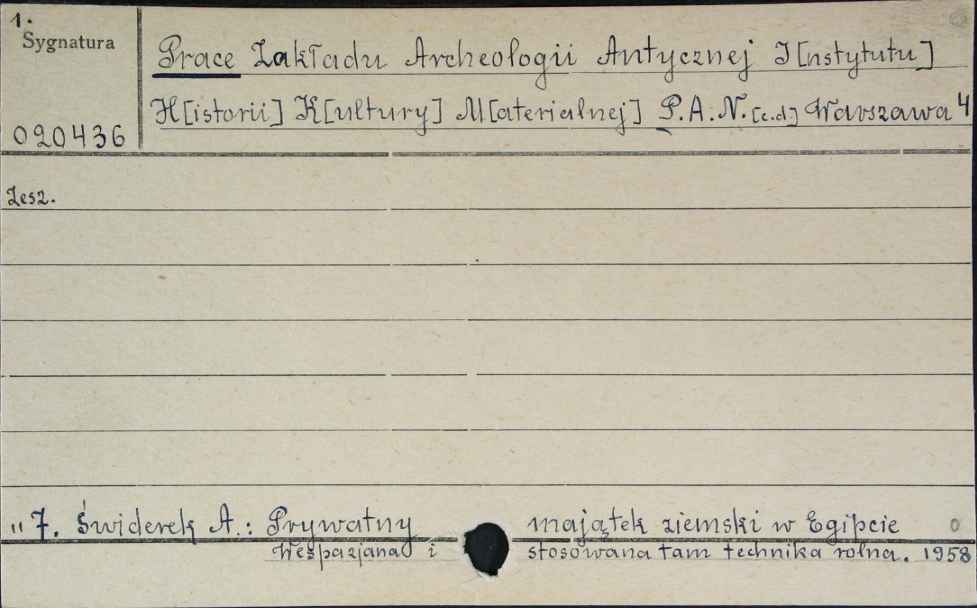 1.
Sygnatura
Prace Zakładu Archeologii Antycznej I[nstytutu]
H[istorii] K[ultury] M[aterialnej] P.A.N. [c.d.] Warszawa 4
020436
Zesz.
" 7. Świderek A.: Prywatny majątek ziemski w Egipcie 0
Wespazjana i stosowana tam technika rolna. 1958